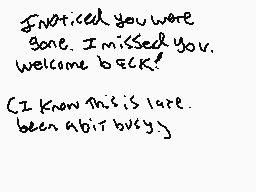 I noticed you were
gone. I missed you.
welcome back!
(I know this is late.
been a bit busy.)